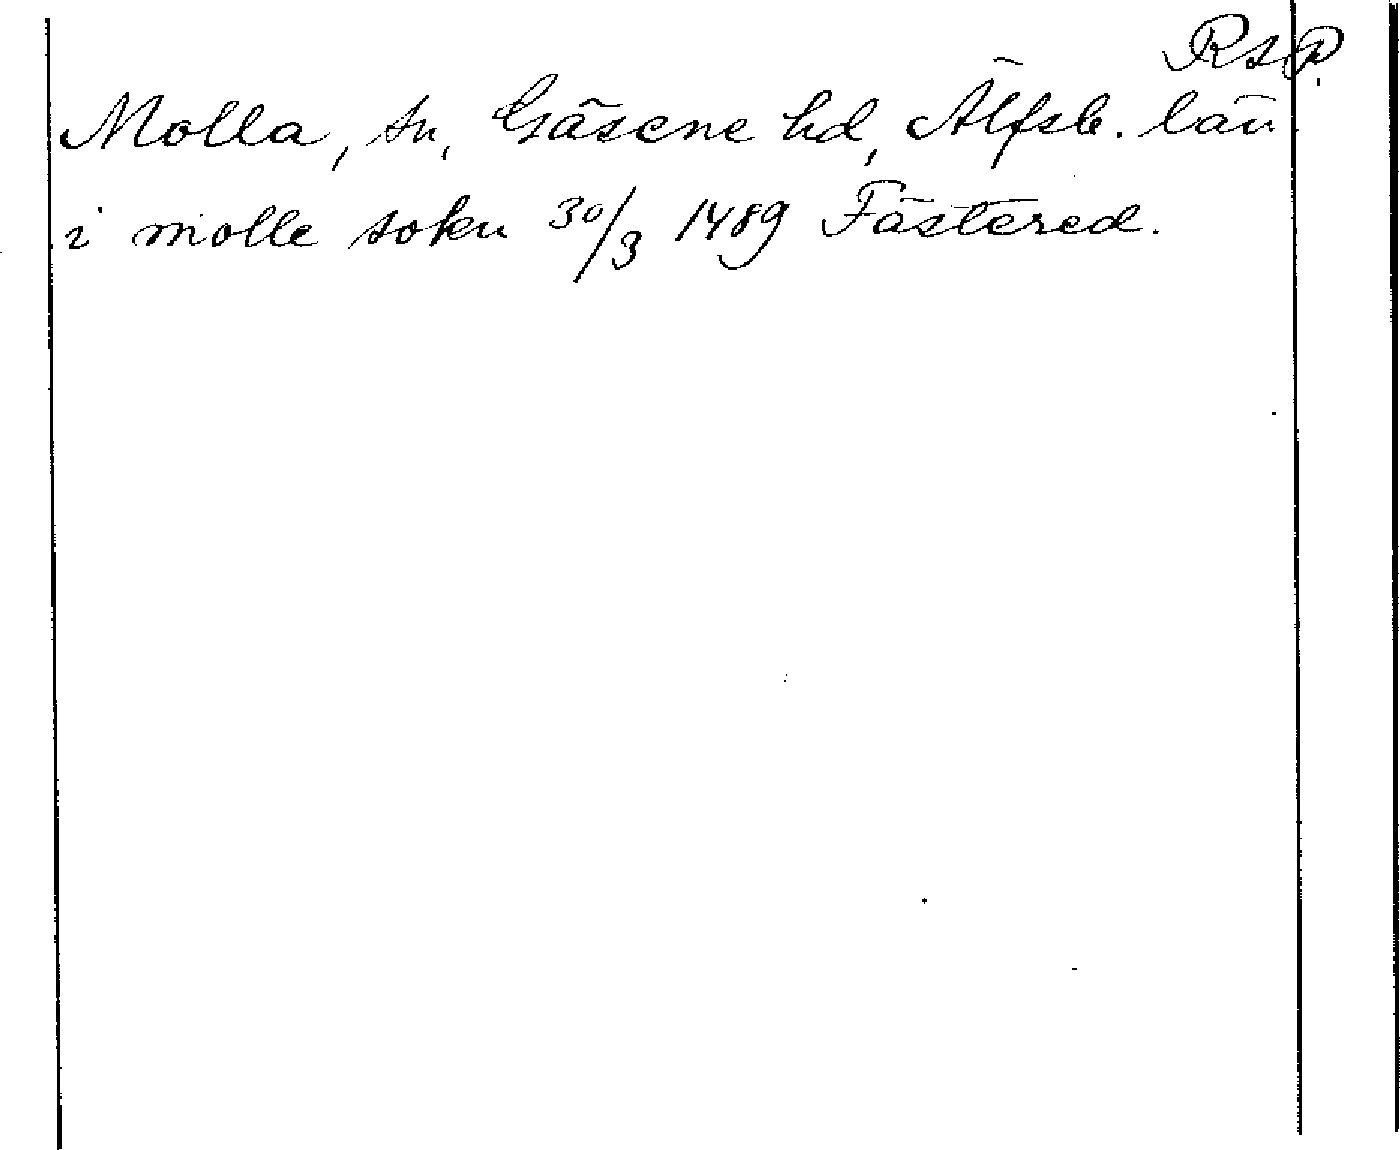 RAP.
Molla, sn, Gäsene hd, Älfsb. län
i molle sokn 30/3 1489 Fästered.